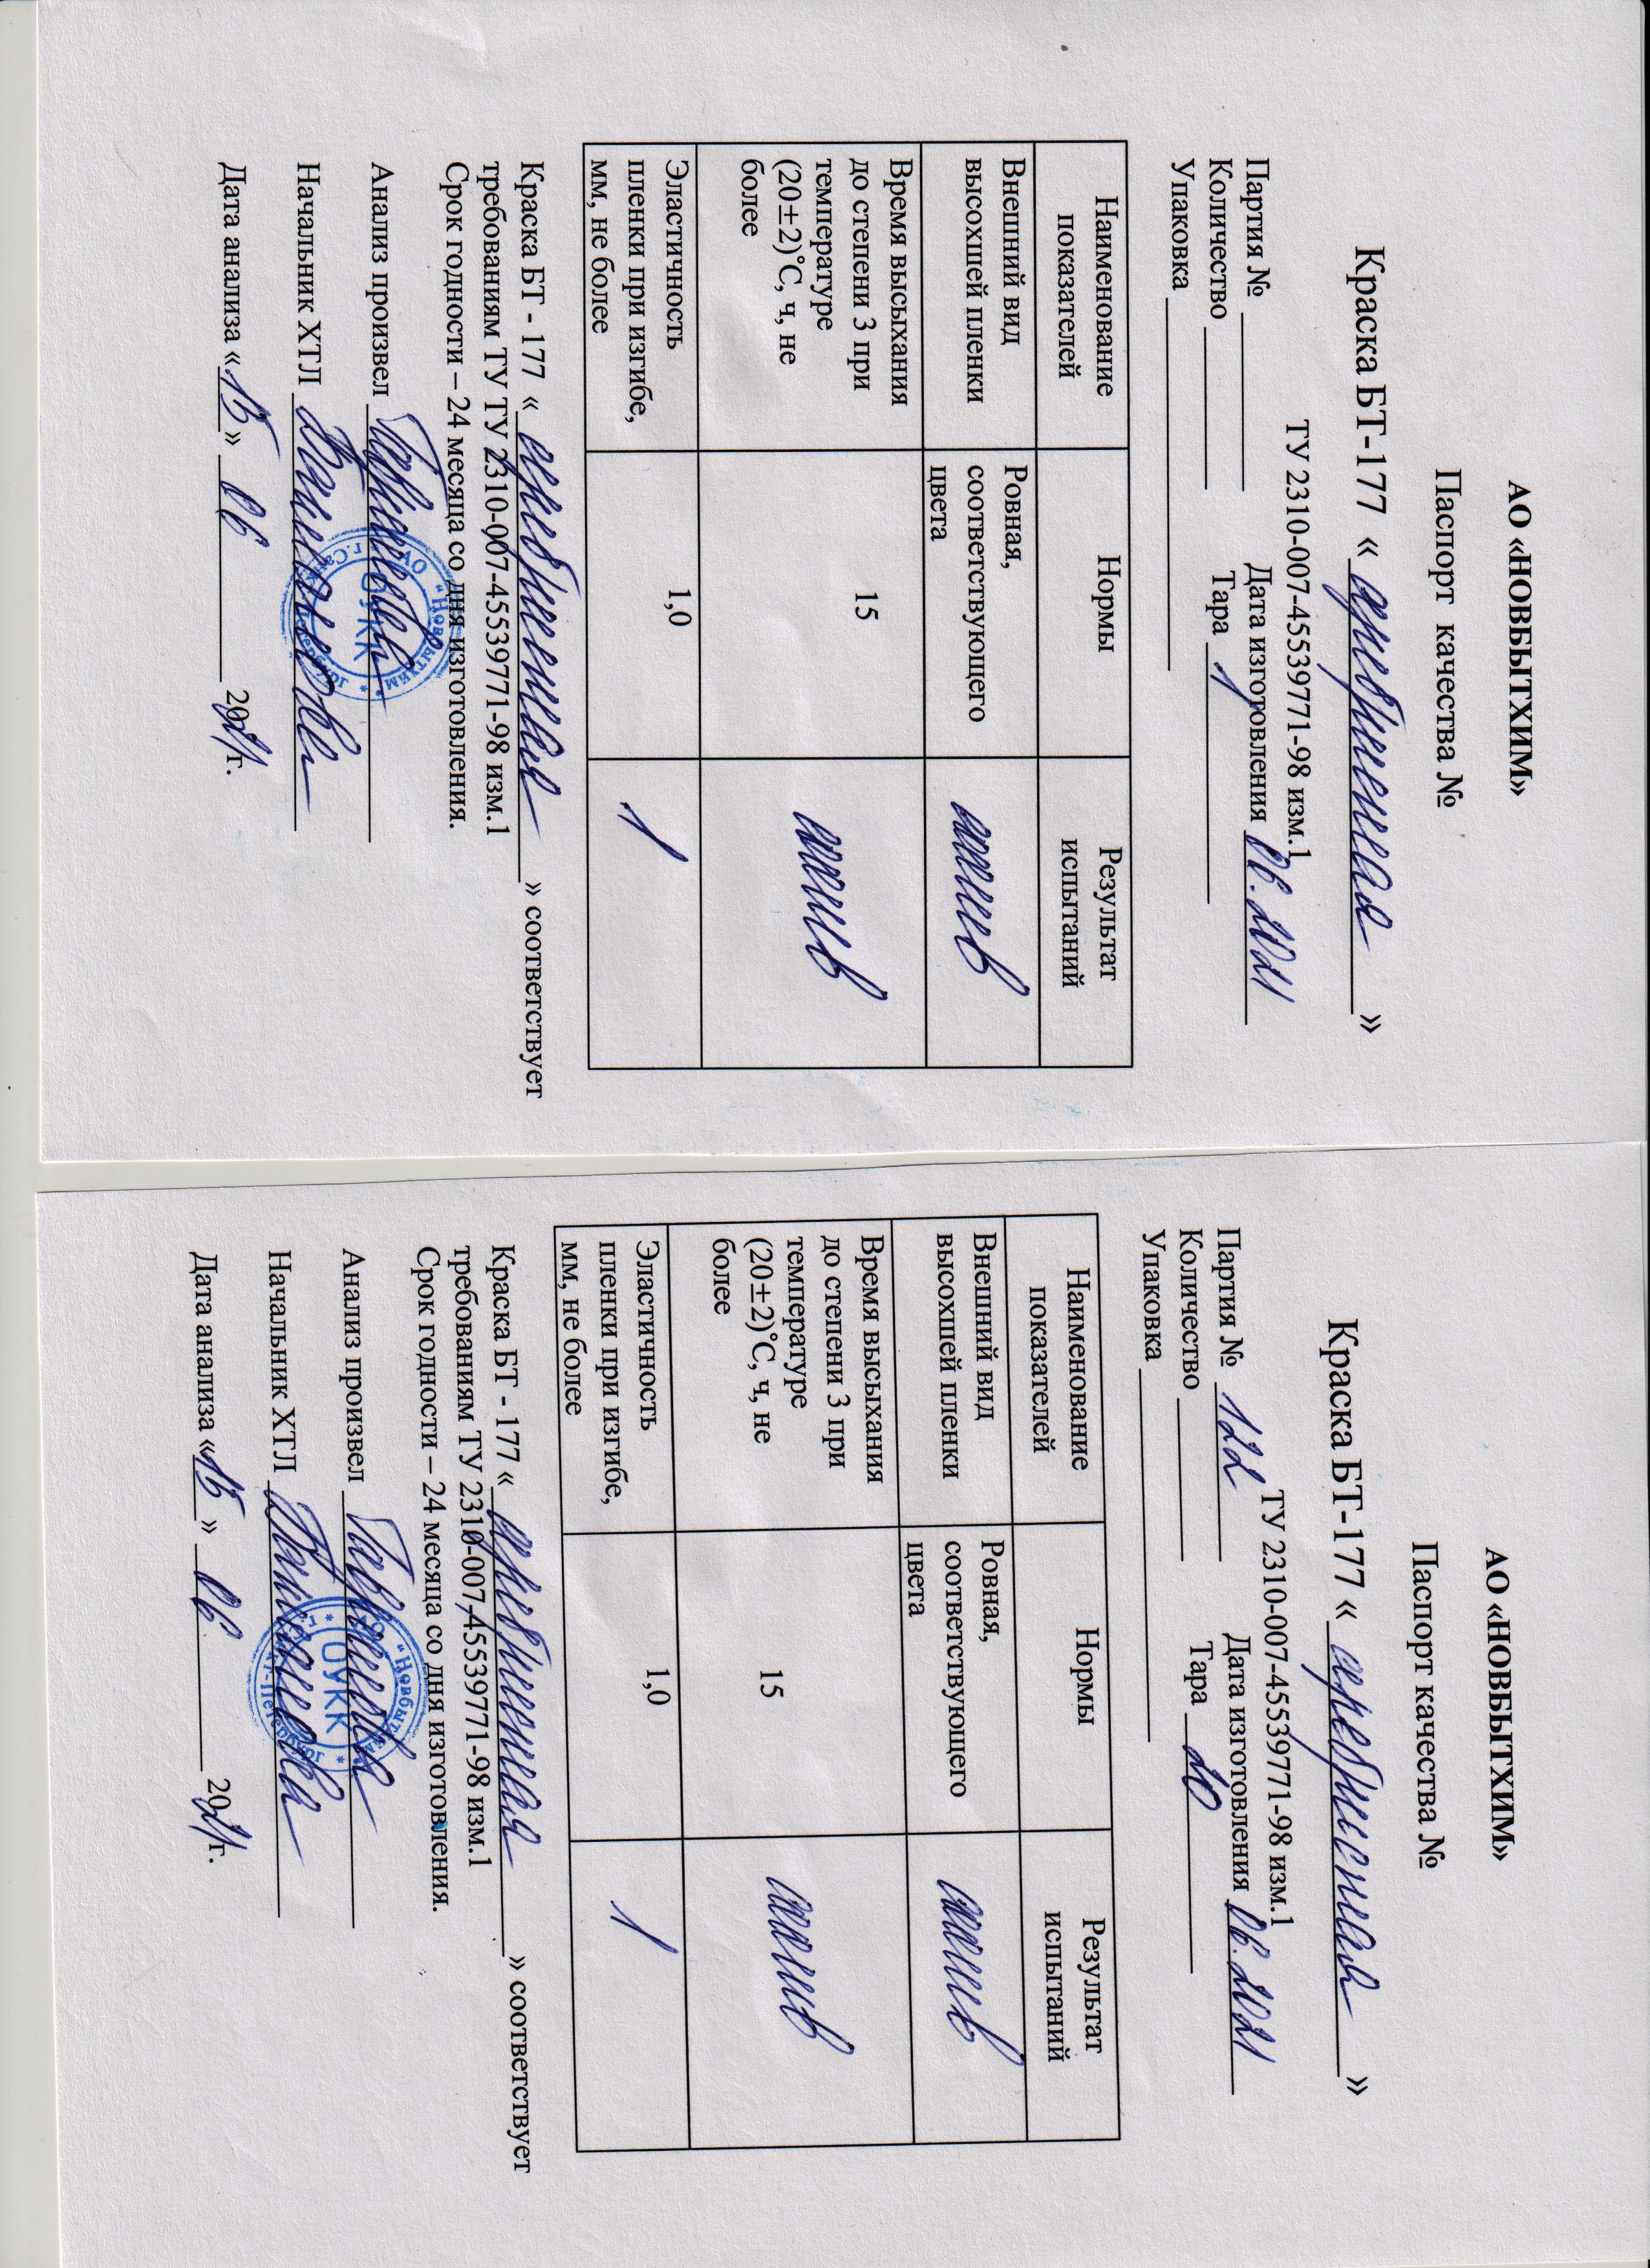 АО «НОВБЫТХИМ»
Паспорт качества №
Краска БТ-177 « серебристая »
ТУ 2310-007-45539771-98 изм.1
Партия № Дата изготовления 06.2021
Количество Тара 1
Упаковка
Наименование показателей Нормы Результат испытаний
Внешний вид Ровная,
высохшей пленки соответствующего
цвета
Время высыхания
до степени 3 при
температуре 15
(20±2)°С, ч, не
более
Эластичность
пленки при изгибе, 1,0 1
мм, не более
Краска БТ - 177 « серебристая » соответствует
требованиям ТУ ТУ 2310-007-45539771-98 изм.1
Срок годности – 24 месяца со дня изготовления.
Анализ произвел
Начальник ХТЛ
Дата анализа «15» 06 2021г.
ОУКК
АО «НОВБЫТХИМ»
Паспорт качества №
Краска БТ-177 « серебристая »
ТУ 2310-007-45539771-98 изм.1
Партия № 122 Дата изготовления 06.2021
Количество Тара 20
Упаковка
Наименование показателей Нормы Результат испытаний
Внешний вид Ровная,
высохшей пленки соответствующего
цвета
Время высыхания
до степени 3 при
температуре 15
(20±2)°С, ч, не
более
Эластичность
пленки при изгибе, 1,0 1
мм, не более
Краска БТ - 177 « серебристая » соответствует
требованиям ТУ 2310-007-45539771-98 изм.1
Срок годности – 24 месяца со дня изготовления.
Анализ произвел
Начальник ХТЛ
Дата анализа «15» 06 2021г.
ОУКК